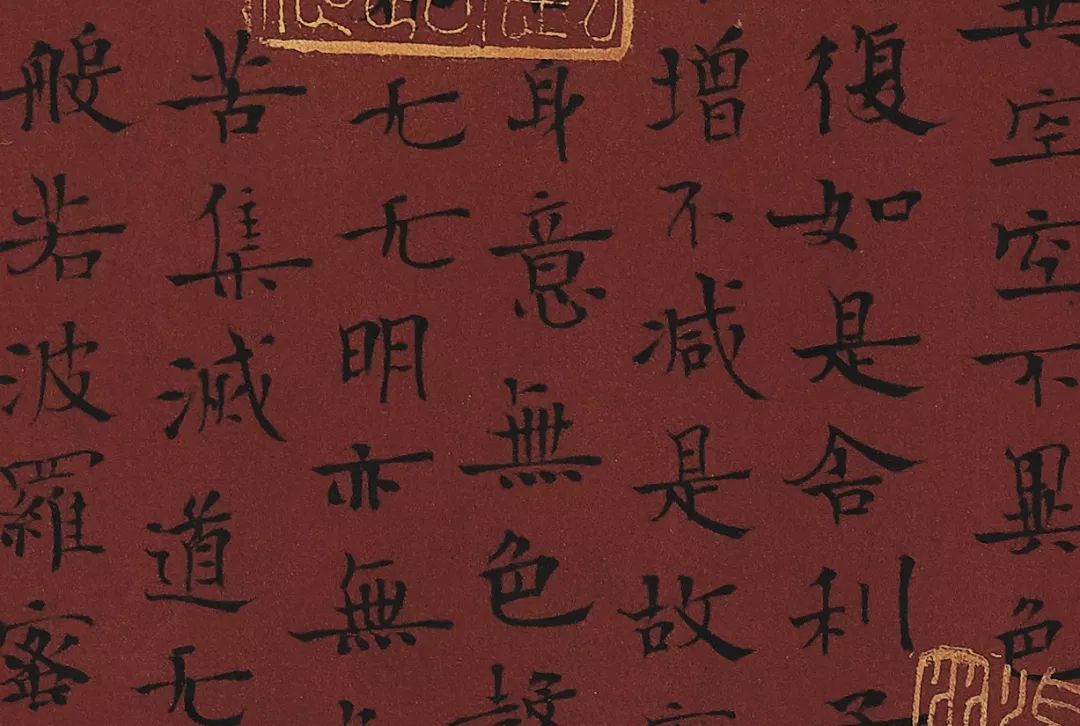 空空不異色
復如是舍利子
增不減是故
身意無色聲
无无明亦無
苦集滅道无
般若波羅蜜